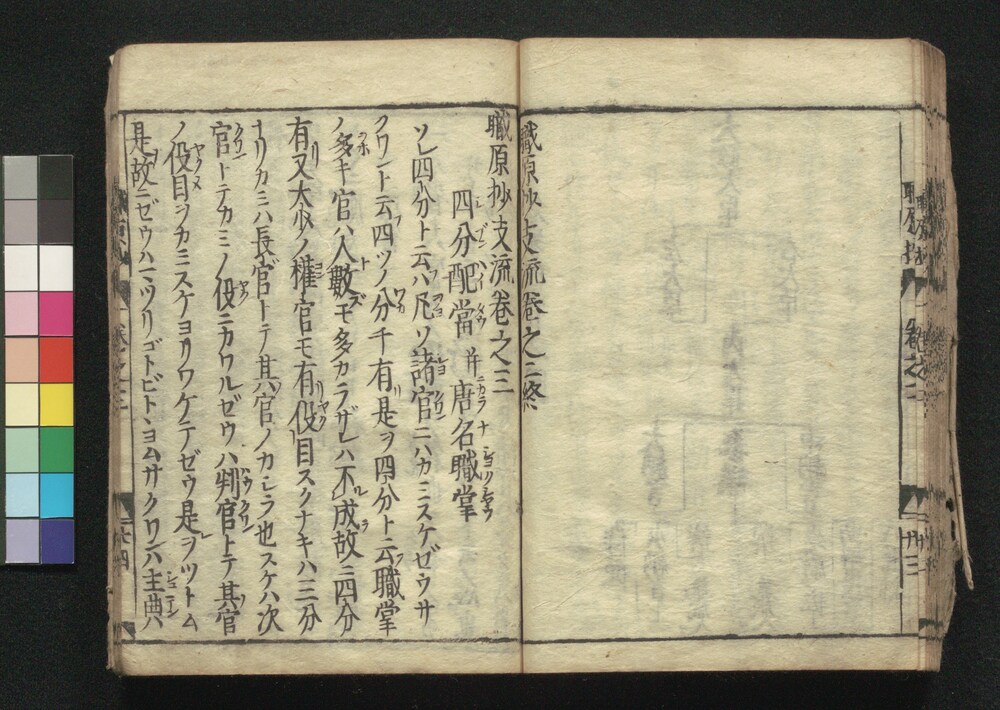 職原抄支流卷之二終
職原抄支流卷之三
四分配當并唐名職掌
ソレ四分ト云ハ凡ソ諸官ニハカミスケゼウサ
クワント云四ツノ分チ有是ヲ四分ト云職掌
ノ多キ官ハ人數モ多カラザレハ不成故ニ四分
有又太少ノ權官モ有役目スクナキハ三分
ナリカミハ長官トテ其官ノカシラ也スケハ次
官トテカミノ役ニカワルゼウハ判官トテ其官
ノ役目ヲカミスケヨリワケテゼウ是ヲツトム
是故ニゼウハマツリゴトビトヽヨムサクワンハ主典ハ